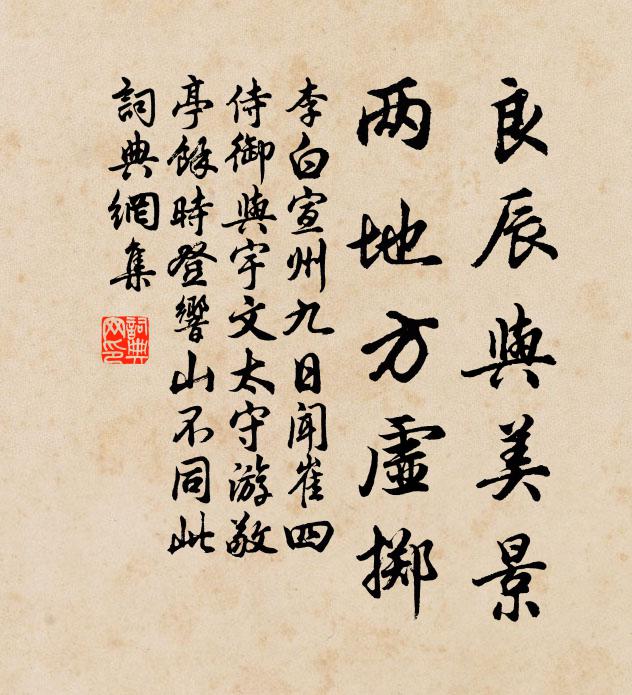 良辰與美景
两地方虛掷
李白宣州九日闻崔四
侍御與宇文太守游敬
亭餘時登響山不同此
詞典網集
詞典
网印